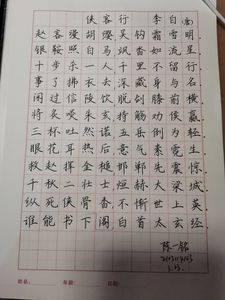 侠客行 李白 (唐)
赵客缦胡缨,吴钩霜雪明.
银鞍照白马,飒沓如流星.
十步杀一人,千里不留行.
事了拂衣去,深藏身与名.
闲过信陵饮,脱剑膝前横.
将炙啖朱亥,持觞劝侯嬴.
三杯吐然诺,五岳倒为轻.
眼花耳热后,意气素霓生.
救赵挥金槌,邯郸先震惊.
千秋二壮士,烜赫大梁城.
纵死侠骨香,不惭世上英.
谁能书阁下,白首太玄经.
陈一铭
姓名: 年龄: 日期: